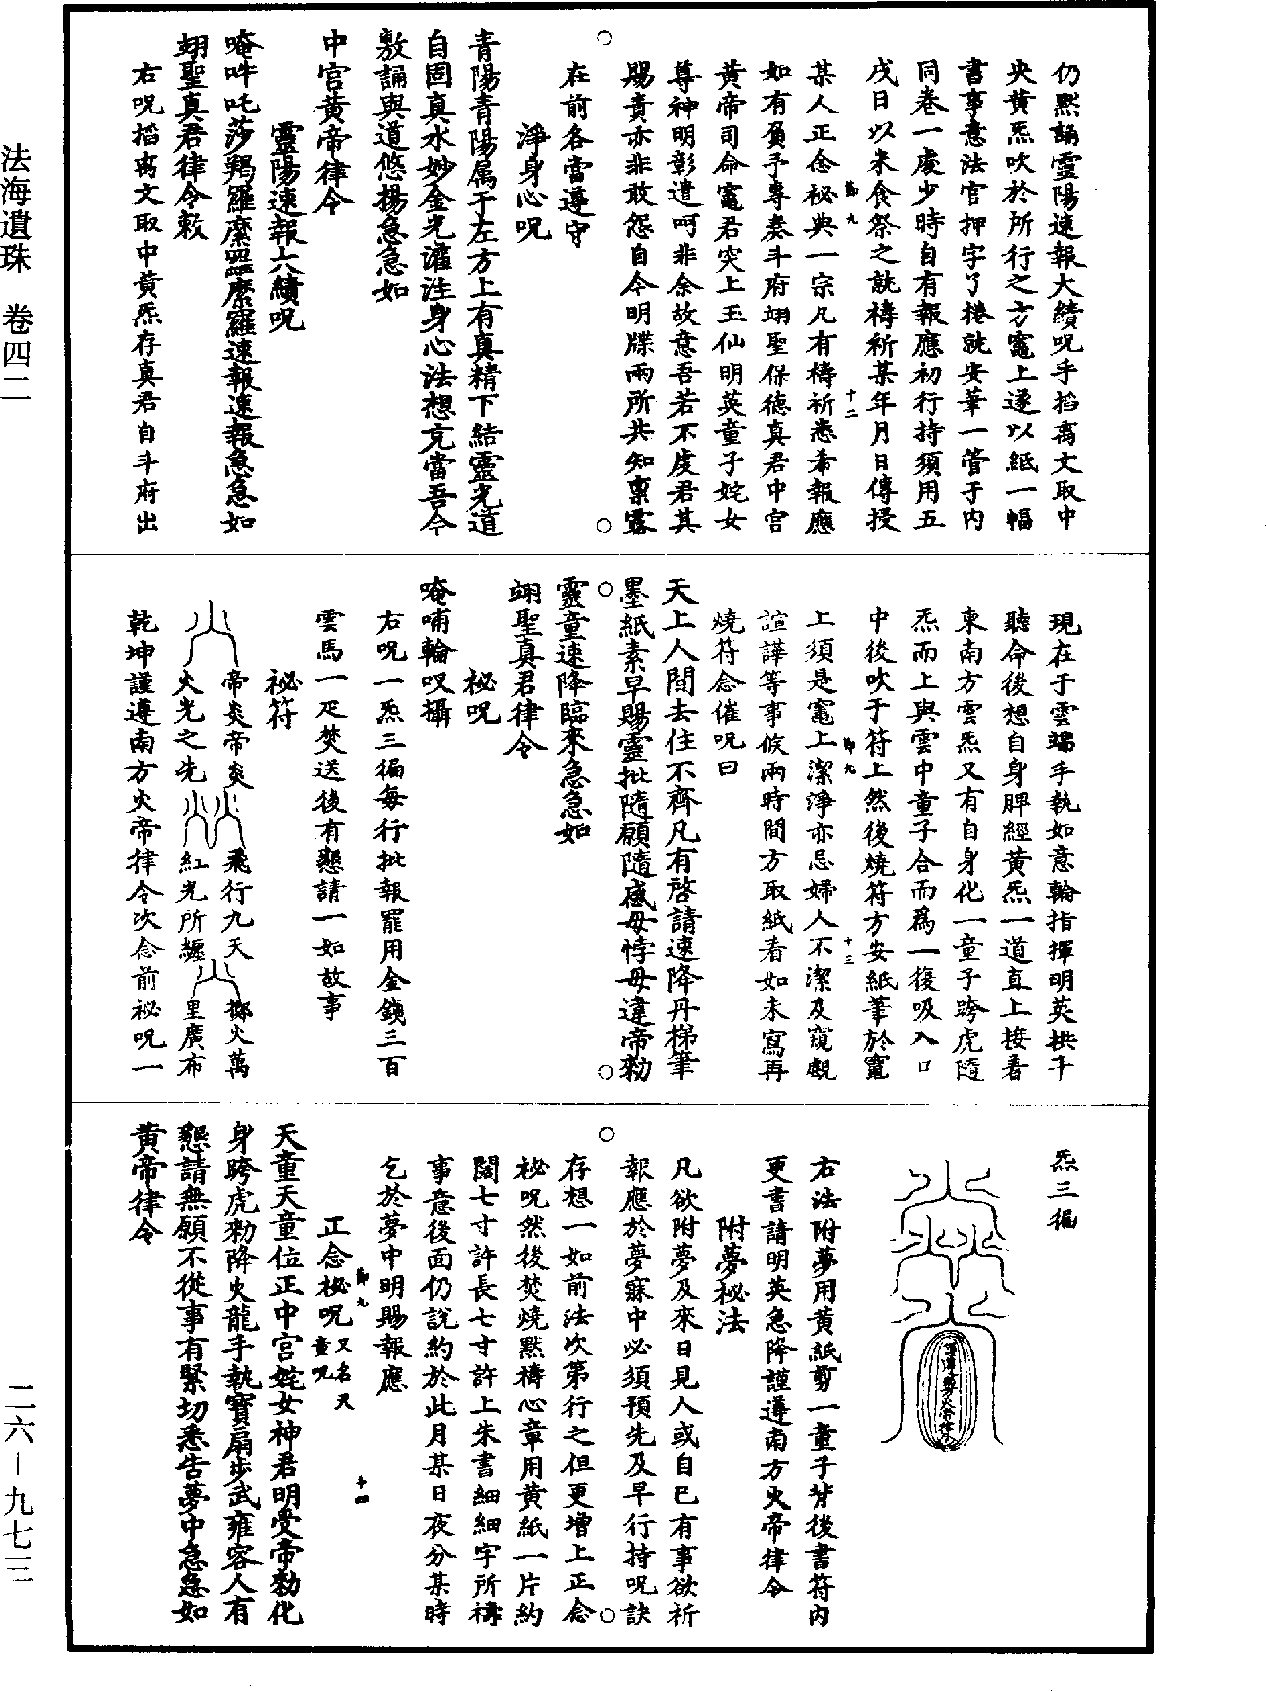 仍黙誦靈陽速報大績呪手掐离文取中
央黃炁吹於所行之方竈上遂以紙一幅
書事意法官押字了捲就安華一管于内
同卷一處少時自有報應初行持須用五
戌日以米食祭之就禱祈某年月日傳授
某人正念祕典一宗凡有禱祈悉希報應
如有負予專奏斗府翊聖保德真君中宫
黃帝司命竈君突上玉仙明英童子姹女
尊神明彰遣呵非余故意吾若不虔君其
賜責亦非敢怨自今明牒兩所共知稟露
在前各當遵守
淨身心呪
青陽青陽属于左方上有真精下結靈光道
自固真水妙金光灌注身心法想克當吾今
敷誦與道悠揚急急如
中宫黃帝律令
靈陽速報六績呪
唵吽吒莎羯羅縻㗊縻羅速報速報急急如
翊聖真君律令敕
右呪掐离文取中黃炁存真君自斗府出
現在于雲端手執如意輪指揮明英拱手
聽命後想自身脾經黃炁一道直上接着
東南方雲炁又有自身化一童子跨虎隨
炁而上與雲中童子合而爲一復吸入口
中後吹于符上然後燒符方安紙筆於竈
上須是竈上潔淨亦忌婦人不潔及窺覷
諠譁等事候兩時間方取紙看如未寫再
燒符念催呪曰
天上人間去住不齊凡有啓請速降丹梯筆
墨紙素早賜靈批隨願隨感毋悖毋違帝勑
靈童速降臨來急急如
翊聖真君律令
祕呪
唵哺輪㕮攝
右呪一炁三徧每行批報罷用金錢三百
雲馬一疋焚送後有懇請一如故事
祕符
帝炎帝炎
飛行九天
擲火萬
火光之先
紅光所纏
里廣布
乾坤謹遵南方火帝律令次念前祕呪一
炁三徧
右法附夢用黃紙剪一童子背後書符内
更書請明英急降謹遵南方火帝律令
附夢祕法
凡欲附夢及來日見人或自已有事欲祈
報應於夢寐中必須預先及早行持呪訣
存想一如前法次第行之但更增上正念
祕呪然後焚燒黙禱心章用黃紙一片約
闊七寸許長七寸許上朱書細細字所禱
事意後面仍說約於此月某日夜分某時
乞於夢中明賜報應
正念祕呪又名天童呪
天童天童位正中宫姹女神君明受帝勑化
身跨虎勑降火龍手執寶扇步武雍容人有
懇請無願不從事有緊切悉告夢中急急如
黃帝律令
法海遺珠 卷四二
二六—九七三